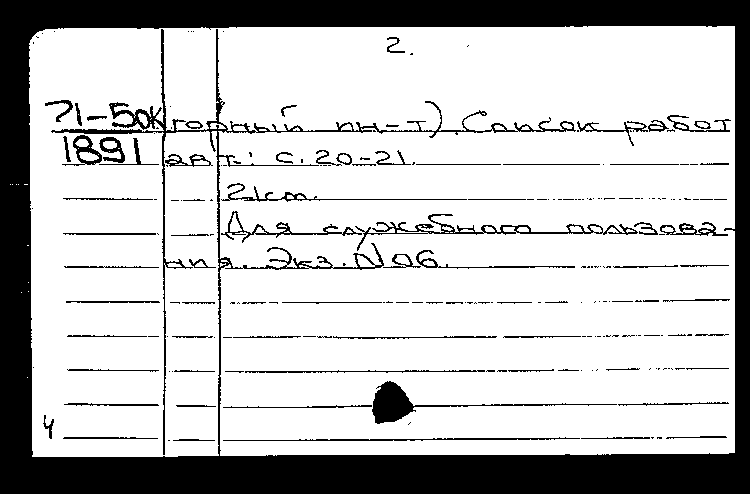 2.
71-50к горный ин-т). Список работ
1891 авт.: с.20-21.
21см.
Для служебного пользова-
ния. Экз.N06.
4